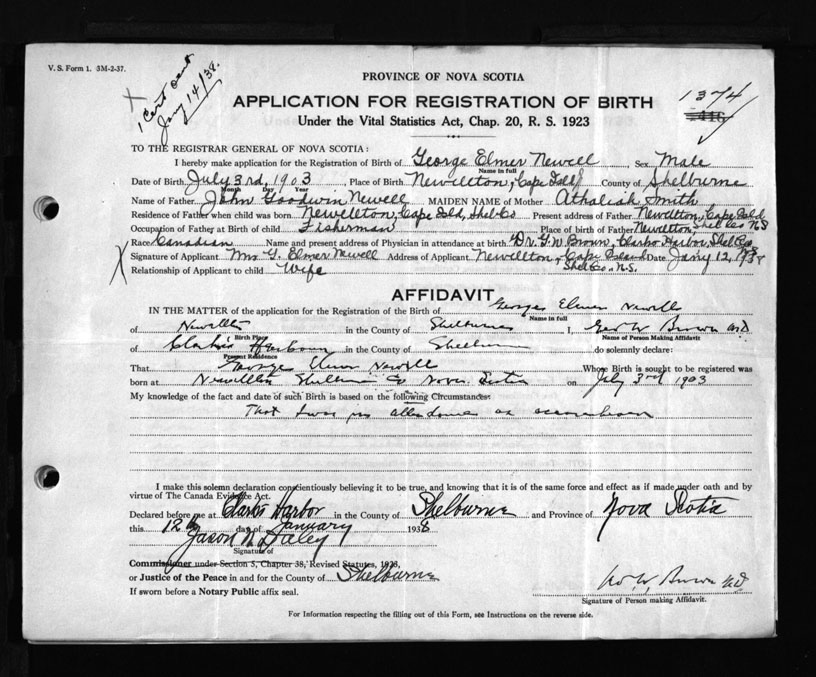 V. S. Form 1. 3M-2-37.
1 Cert sent
Jany 14/38.
PROVINCE OF NOVA SCOTIA
APPLICATION FOR REGISTRATION OF BIRTH
Under the Vital Statistics Act, Chap. 20, R. S. 1923
1374
416
TO THE REGISTRAR GENERAL OF NOVA SCOTIA:
I hereby make application for the Registration of Birth of George Elmer Newell Sex Male
Name in full
Date of Birth July 3rd, 1903, Place of Birth Newellton, Cape Isld, County of Shelburne
Month Day Year
Name of Father John Goodwin Newell MAIDEN NAME of Mother Athaliah Smith
Residence of Father when child was born Newellton, Cape Isld, Shel Co Present address of Father Newellton, Cape Isld
Shel Co NS
Occupation of Father at Birth of child Fisherman Place of birth of Father Newellton,
Race Canadian Name and present address of Physician in attendance at birth Dr. G. W Brown, Clarks Harbor, Shel Co
Signature of Applicant Mrs G. Elmer Newell Address of Applicant Newellton, Cape Island Date Jany 12, 1938
Shel Co. N.S.
Relationship of Applicant to child Wife
AFFIDAVIT
IN THE MATTER of the application for the Registration of the Birth of George Elmer Newell
Name in full
of Newellton in the County of Shelburne I, Geo W Brown MD
Birth Place Name of Person Making Affidavit
of Clarks Harbour in the County of Shelburne do solemnly declare:
Present Residence
That George Elmer Newell Whose Birth is sought to be registered was
born at Newellton Shelburne Co Nova Scotia on July 3rd 1903
My knowledge of the fact and date of such Birth is based on the following Circumstances:
That I was in attendance as accoucheur
I make this solemn declaration conscientiously believing it to be true, and knowing that it is of the same force and effect as if made under oath and by
virtue of The Canada Evidence Act.
Declared before me at Clarks Harbor in the County of Shelburne and Province of Nova Scotia
this 12th day of January 1938
Signature of
Commissioner under Section 3, Chapter 38, Revised Statutes, 1923,
or Justice of the Peace in and for the County of Shelburne
If sworn before a Notary Public affix seal.
Geo W. Brown MD
Signature of Person making Affidavit.
For Information respecting the filling out of this Form, see Instructions on the reverse side.